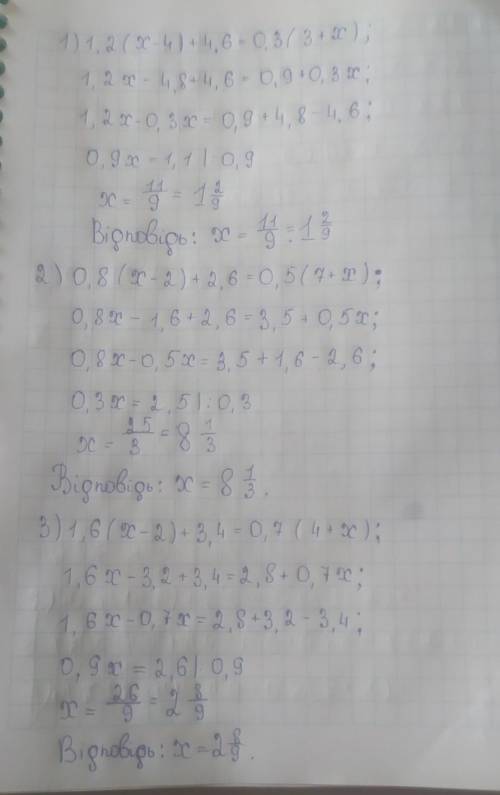 1) 1,2(x-4)+4,6=0,3(3+x);
1,2x-4,8+4,6=0,9+0,3x;
1,2x-0,3x=0,9+4,8-4,6;
0,9x=1,1|0,9
x=11/9=1 2/9
Відповідь: x=11/9=1 2/9
2) 0,8(x-2)+2,6=0,5(7+x);
0,8x-1,6+2,6=3,5+0,5x;
0,8x-0,5x=3,5+1,6-2,6;
0,3x=2,5|:0,3
x=25/3=8 1/3
Відповідь: x=8 1/3.
3) 1,6(x-2)+3,4=0,7(4+x);
1,6x-3,2+3,4=2,8+0,7x;
1,6x-0,7x=2,8+3,2-3,4;
0,9x=2,6|0,9
x=26/9=2 8/9
Відповідь: x=2 8/9.